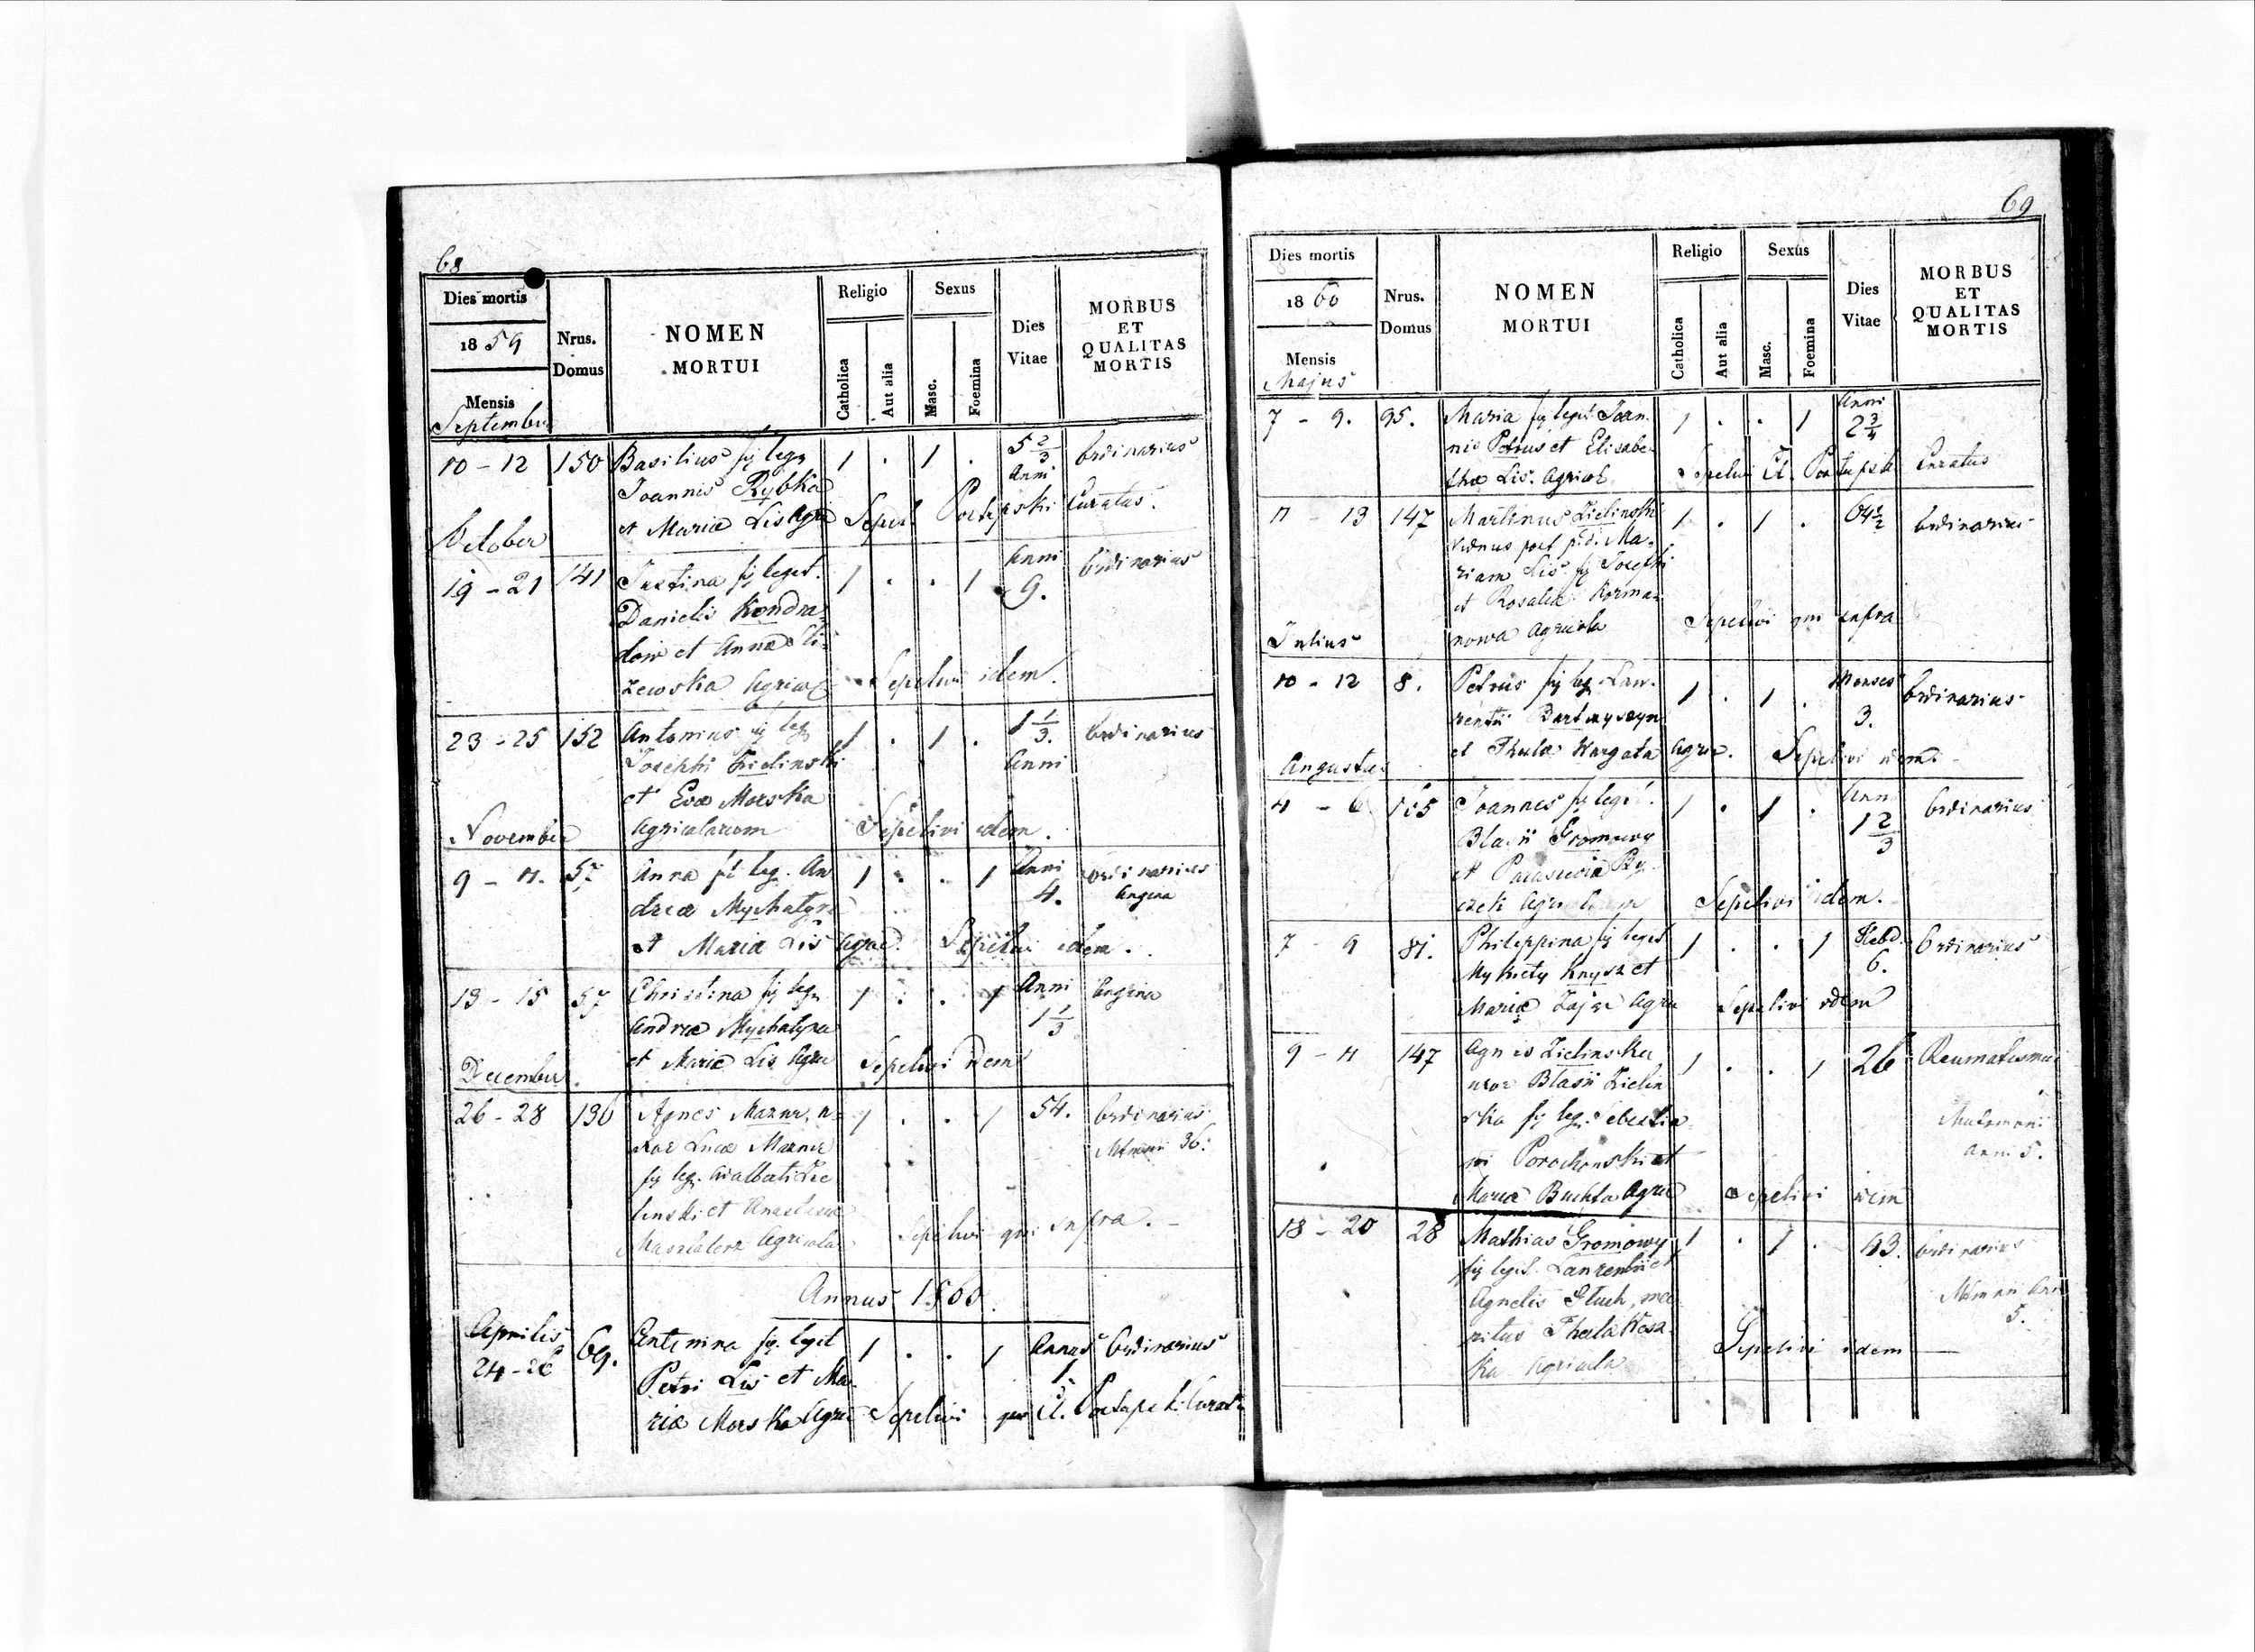 68
Dies mortis
1859
Mensis
September
Nrus. Domus
NOMEN MORTUI
Religio
Catholica
Aut alia
Sexus
Masc.
Foemina
Dies Vitae
MORBUS ET QUALITAS MORTIS
10 - 12 150 Basilius fil leg. 1 . 1 . 5 2/3 Anni Ordinarius
Joannis Rybka
et Mariae Lis Agric Sepel. Curatus.
October
19 - 21 141 Justina fil legit. 1 . . 1 Anni 9. Ordinarius
Danielis Kondra
tow et Annae
zewska Agric Sepelivi idem.
23 - 25 152 Antonius fil leg 1 . 1 . 1 1/3. Anni Ordinarius
Josephi Zielinski
et Evae Morska
Agricolarum Sepelivi idem.
November
9 - 11. 57 Anna fil leg. An 1 . . 1 Anni 4. Ordinarius Angina
dreae Mychatyra
et Mariae Lis Agric. Sepelivi idem.
13 - 15 57 Christina fil leg. 1 . . 1 Anni 1 1/3 Angina
Andreae Mychatyra
et Mariae Lis Agric Sepelivi idem
December.
26 - 28 130 Agnes Mazur, u 1 . . 1 54. Ordinarius
xor Lucae Mazur Matrimonii 36.
fil leg. Adalberti Zie
linski et Anastasiae
Agricola Sepelivi qui supra. -
Annus 1860.
Aprilis
24 - 26 69. Antonina fil. legit 1 . . 1 Annus 1. Ordinarius
Petri Lis et Ma
riae Morska Agric Sepelivi
69
Dies mortis
1860
Mensis
Majus
Nrus. Domus
NOMEN MORTUI
Religio
Catholica
Aut alia
Sexus
Masc.
Foemina
Dies Vitae
MORBUS ET QUALITAS MORTIS
7 - 9. 95. Maria fil legit Joan 1 . . 1 Anni 2 3/4
nis Petrus et Elisabe
thae Lis. Agricol. Sepelivi Curatus
11 - 13 147 Martinus Zielinski 1 . 1 . 64 1/2 Ordinarius
Viduus post Ma
riam Lis fil Josephi
et Rosaliae Korma
nowa Agricola Sepelivi qui supra
Julius
10 - 12 8. Petrus fil leg. Lau 1 . 1 . Menses 3. Ordinarius
rentii Bartmyszyn
et Theclae Kargata Agric. Sepelivi idem.
Augustus
4 - 6 Joannes fil legit. 1 . 1 . Anni 1 2/3 Ordinarius
Blasii Gromowy
et
Sepelivi idem.
7 - 9 81. Philippina fil legit 1 . . 1 Hebd. 6. Ordinarius
Mykiety Knysz et
Mariae Zajac Agric Sepelivi idem
9 - 11 147 Agnes Zielinska 1 . . 1 26 Reumatismus
uxor Blasii Zielin
ska fil leg. Sebastia Matrimonii
ni Porochonski et anni 5.
Mariae Buchta Agric Sepelivi idem
18 - 20 28 Mathias Gromowy 1 . 1 . 43. Ordinarius
fil legit. Laurentii et
Agnetis Gluch, ma
ritus Thecla
ka Agricola Sepelivi idem
5.